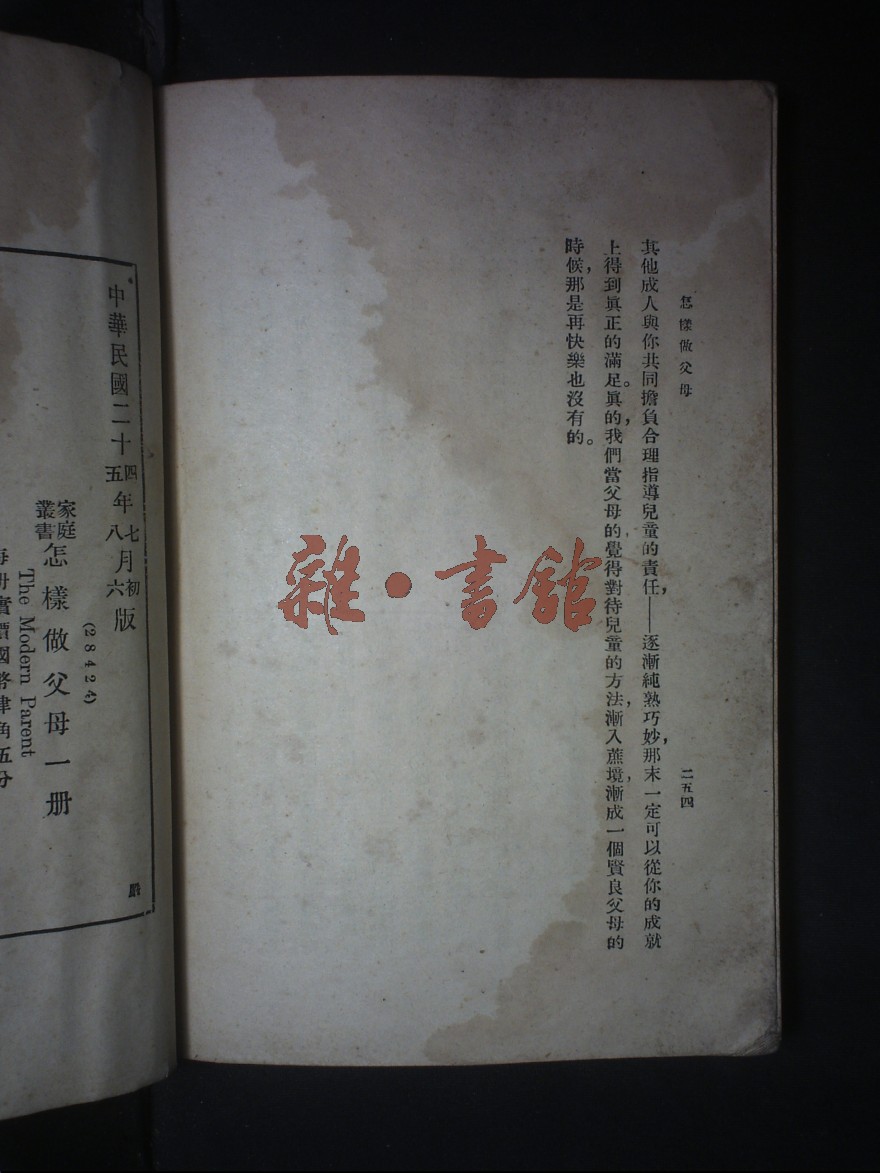 怎樣做父母
二五四
其他成人與你共同擔負合理指導兒童的責任,——逐漸純熟巧妙,那末一定可以從你的成就
上得到眞正的滿足。眞的,我們當父母的覺得對待兒童的方法,漸入蔗境,漸成一個賢良父母的
時候,那是再快樂也沒有的。
雜·書館
中華民國二十四年七月初版
五 八 六
(28424)
家庭叢書 怎樣做父母一册
The Modern Parent
每册實價國幣肆角五分